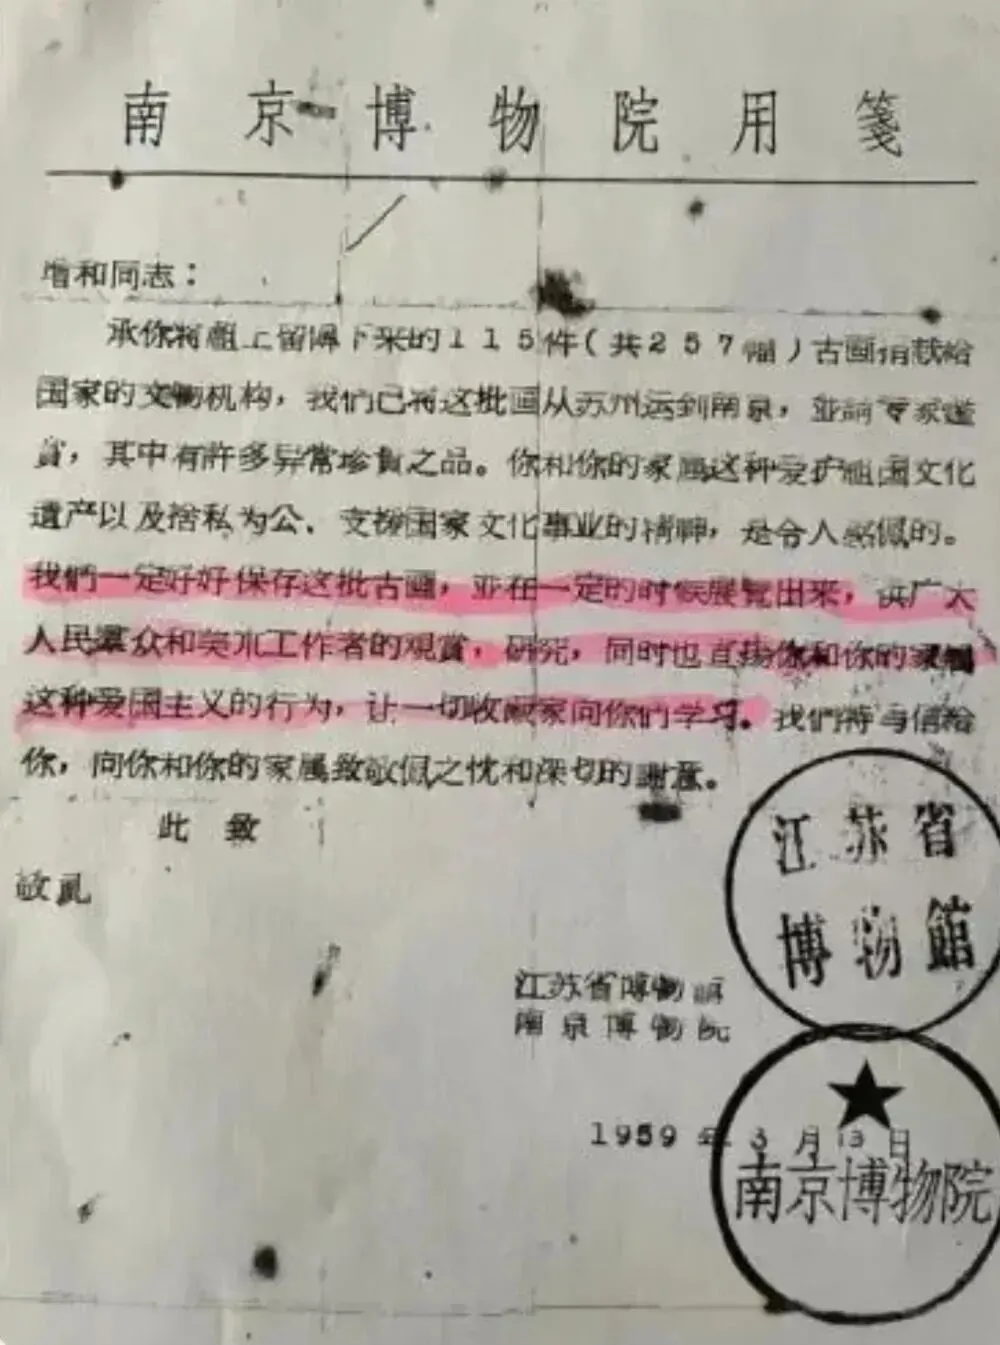 南京博物院用箋
增和同志：
承你将祖上留传下来的115件(共257幅)古画捐献给
国家的文物机构，我們已将这批画从苏州运到南京，並請专家鉴
賞，其中有許多异常珍貴之品。你和你的家属这种爱护祖国文化
遺产以及捨私为公、支援国家文化事业的精神，是令人感佩的。
我們一定好好保存这批古画，並在一定的时候展覽出来，供广大
人民羣众和美术工作者的观赏，研究，同时也直接你和你的家属
这种爱国主义的行为，让一切收藏家向你们学习。我們特与信给
你，向你和你的家属致敬佩之忱和深切的謝意。
此致
敬礼
江苏省博物館
南京博物院
1959年3月13日
江苏省
博物館
南京博物院